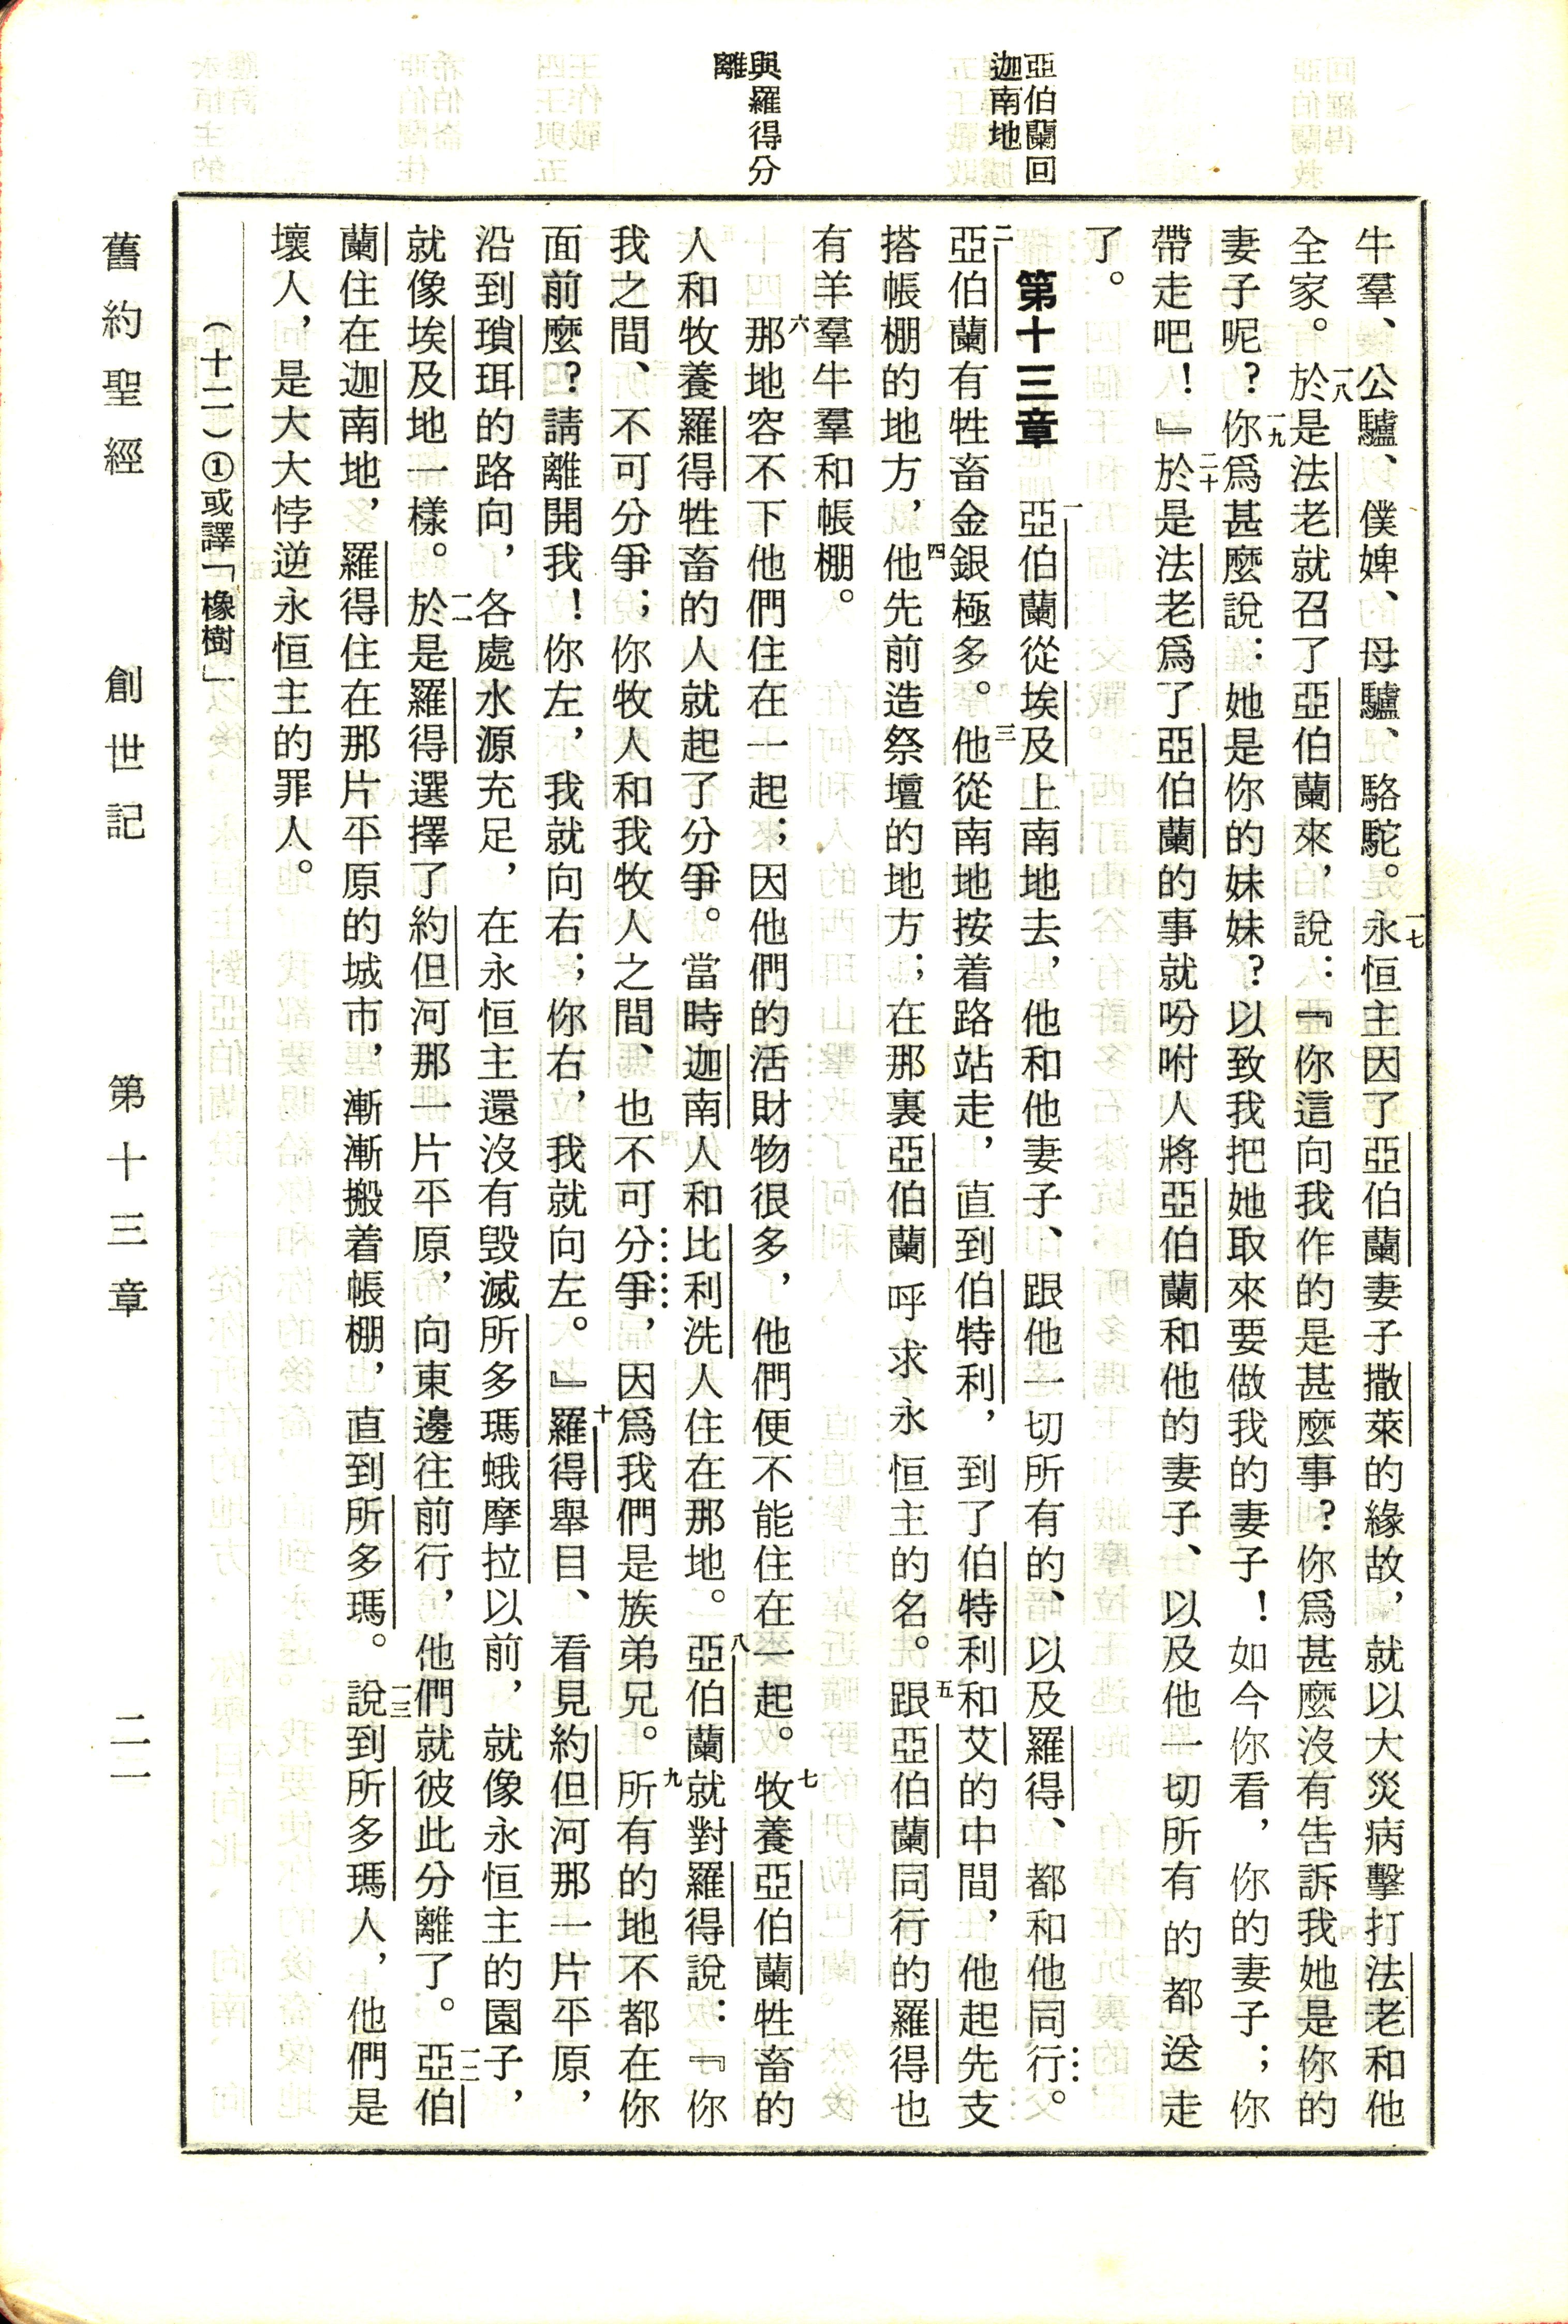 亞伯蘭回
迦南地
與羅得分
離
牛羣、公驢、僕婢、母驢、駱駝。一七永恒主因了亞伯蘭妻子撒萊的緣故，就以大災病擊打法老和他
全家。一八於是法老就召了亞伯蘭來，說：『你這向我作的是甚麼事？你爲甚麼沒有告訴我她是你的
妻子呢？一九你爲甚麼說：她是你的妹妹？以致我把她取來要做我的妻子！如今你看，你的妻子；你
帶走吧！』二十於是法老爲了亞伯蘭的事就吩咐人將亞伯蘭和他的妻子、以及他一切所有的都送走
了。
第十三章　一亞伯蘭從埃及上南地去，他和他妻子、跟他一切所有的、以及羅得、都和他同行。
二亞伯蘭有牲畜金銀極多。三他從南地按着路站走，直到伯特利，到了伯特利和艾的中間，他起先支
搭帳棚的地方，四他先前造祭壇的地方；在那裏亞伯蘭呼求永恒主的名。五跟亞伯蘭同行的羅得也
有羊羣牛羣和帳棚。
六那地容不下他們住在一起；因他們的活財物很多，他們便不能住在一起。七牧養亞伯蘭牲畜的
人和牧養羅得牲畜的人就起了分爭。當時迦南人和比利洗人住在那地。八亞伯蘭就對羅得說：『你
我之間、不可分爭；你牧人和我牧人之間、也不可分爭，因爲我們是族弟兄。九所有的地不都在你
面前麼？請離開我！你左，我就向右；你右，我就向左。』十羅得舉目、看見約但河那一片平原，
沿到瑣珥的路向，各處水源充足，在永恒主還沒有毀滅所多瑪蛾摩拉以前，就像永恒主的園子，
就像埃及地一樣。一一於是羅得選擇了約但河那一片平原，向東邊往前行，他們就彼此分離了。一二亞伯
蘭住在迦南地，羅得住在那片平原的城市，漸漸搬着帳棚，直到所多瑪。一三說到所多瑪人，他們是
壞人，是大大悖逆永恒主的罪人。
（十二）①或譯「橡樹」
舊約聖經　創世記　第十三章　二一